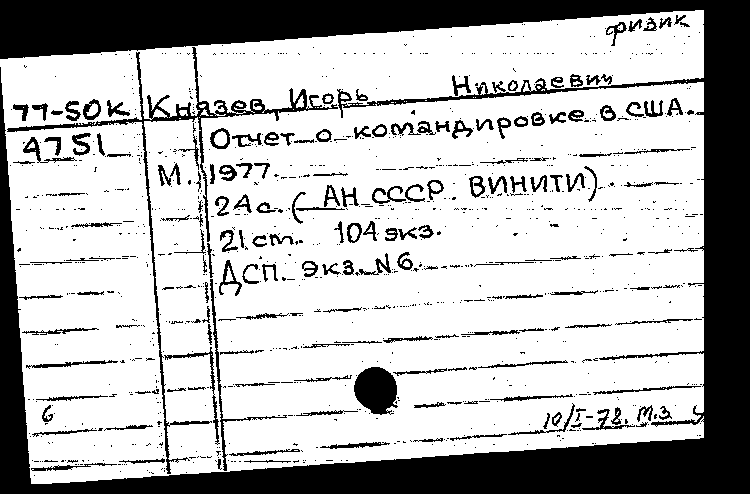 физик
77-50К Князев, Игорь Николаевич
4751 Отчет о командировке в США.
М. 1977.
24с. (АН СССР. ВИНИТИ)
21 cm. 104 экз.
ДСП. экз. N6.
6
10/I-78. м.з